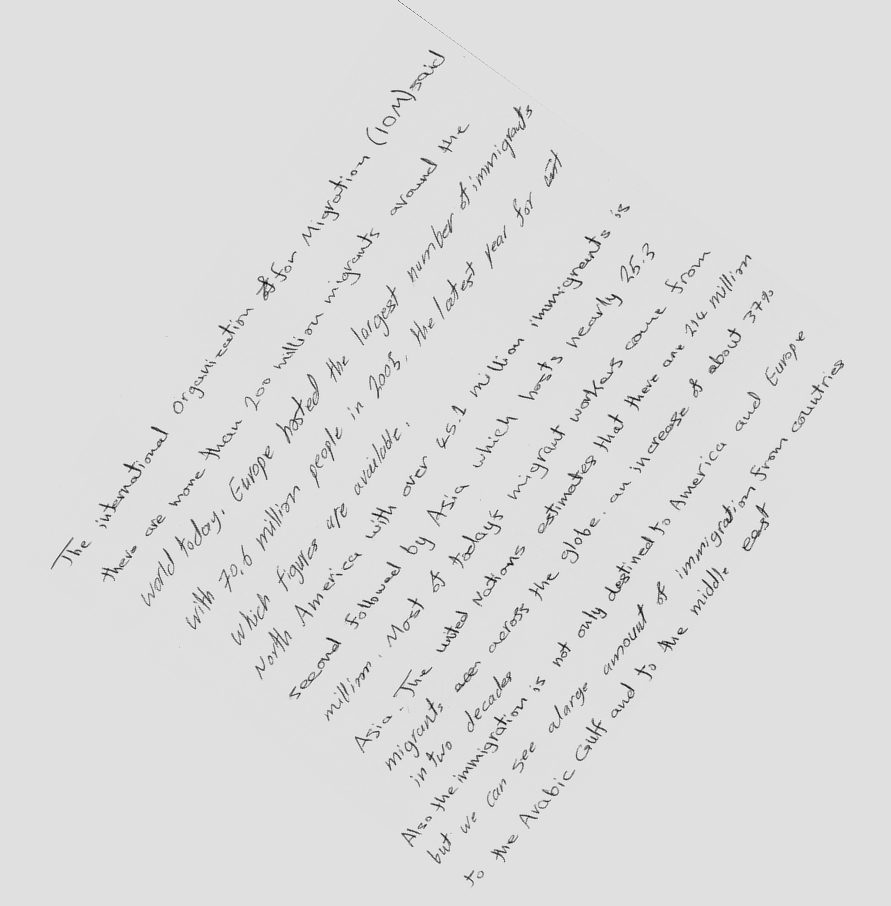 The international Organization for Migration (IOM) said
there are more than 200 million migrants around the
world today, Europe hosted the largest number of immigrants
with 70,6 million people in 2005, the latest year for
which figures are available.
North America with over 45.1 million immigrants is
second followed by Asia which hosts nearly 25.3
million. Most of today's migrant workers come from
Asia. The united Nations estimates that there are 214 million
migrants across the globe. an increase of about 37%
in two decades
Also the immigration is not only destined to America and Europe
but we can see alarge amount of immigration from countries
to the Arabic Gulf and to the middle east